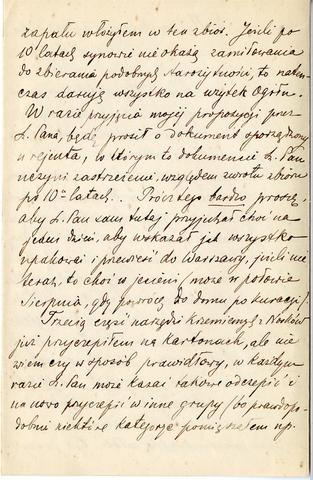 zapału włożyłem w ten zbiór. Jeśli po
10 latach synowie nie okażą zamiłowania
do zbierania podobnych starożytności, to naten-
czas darują wszystko na użytek Ogółu.
W razie przyjęcia mojej propozycji przez
Sz. Pana, będę prosił o dokument sporządzony
u rejenta, w którym to dokumencie Sz. Pan
uczyni zastrzeżenie, względem zwrotu zbioru
po 10ciu latach.. Prócz tego bardzo proszę,
aby Sz. Pan sam tutaj przyjechał choć na
jeden dzień, aby wskazał jak wszystko
upakować i przewieść do Warszawy, jeśli nie
teraz, to choć w jesieni (może w połowie
Sierpnia, gdy powrócę do domu po kuracyi)
Trzecią część narzędzi krzemiennych z
już przyczepiłem na kartonach, ale nie
wiem czy w sposób prawidłowy, w każdym
razie Sz. Pan może kazać takowe odczepić i
na nowo przyczepić w inne grupy (bo prawdopo-
dobnie niektóre kategorje pomięszałem np.